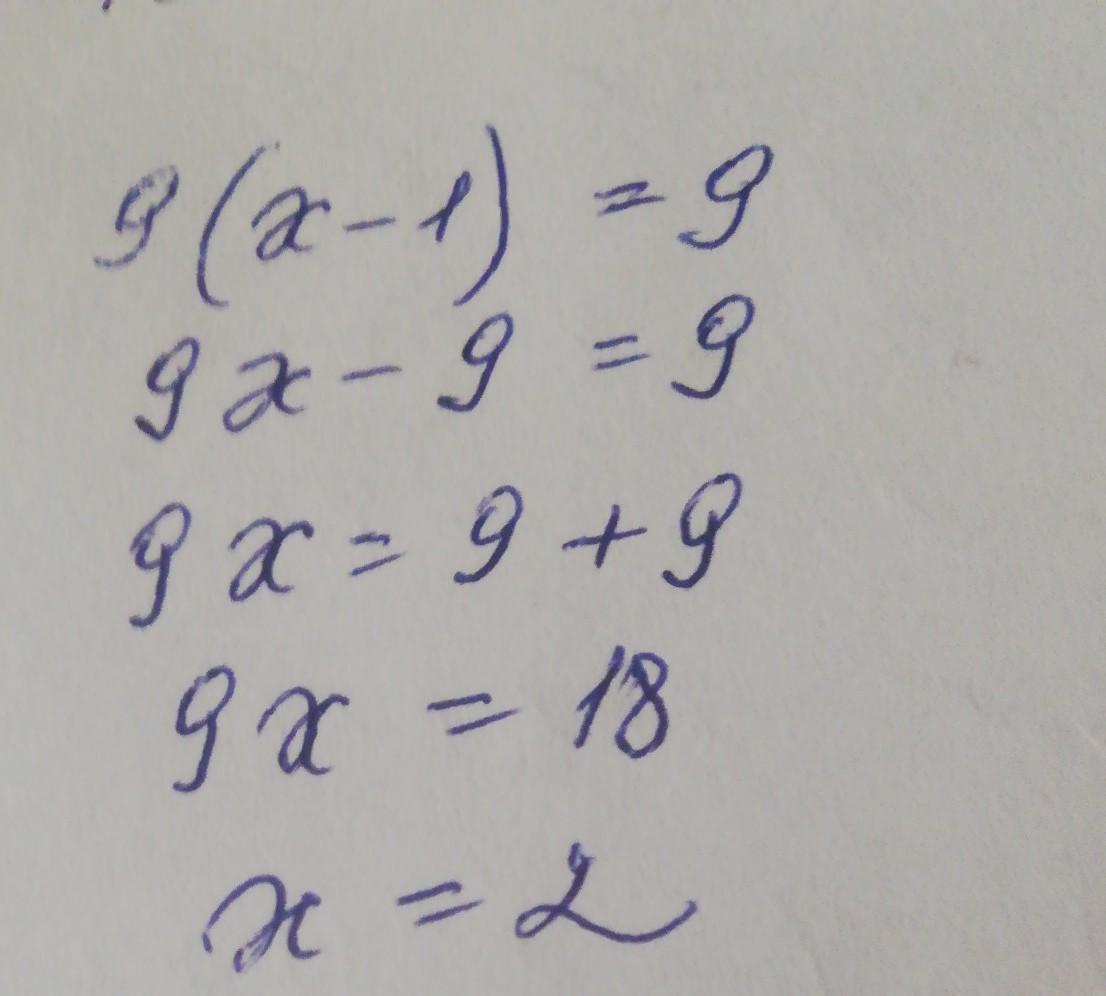 9(x-1) = 9
9x - 9 = 9
9x = 9 + 9
9x = 18
x = 2